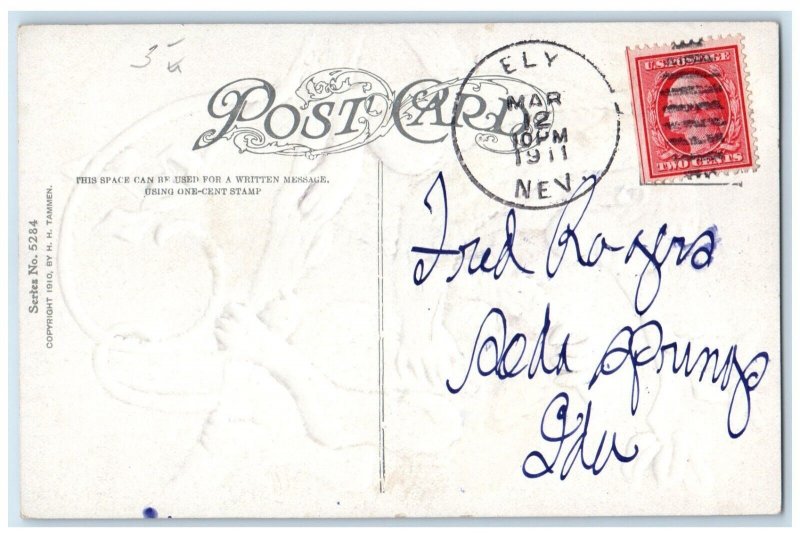 35
POST CARD
ELY
MAR
12
10 PM
1911
NEV.
U.S. POSTAGE
TWO CENTS
THIS SPACE CAN BE USED FOR A WRITTEN MESSAGE,
USING ONE-CENT STAMP
Series No. 5284
COPYRIGHT 1910, BY H. H. TAMMEN.
Fred Rogers
Soda Springs
Ida